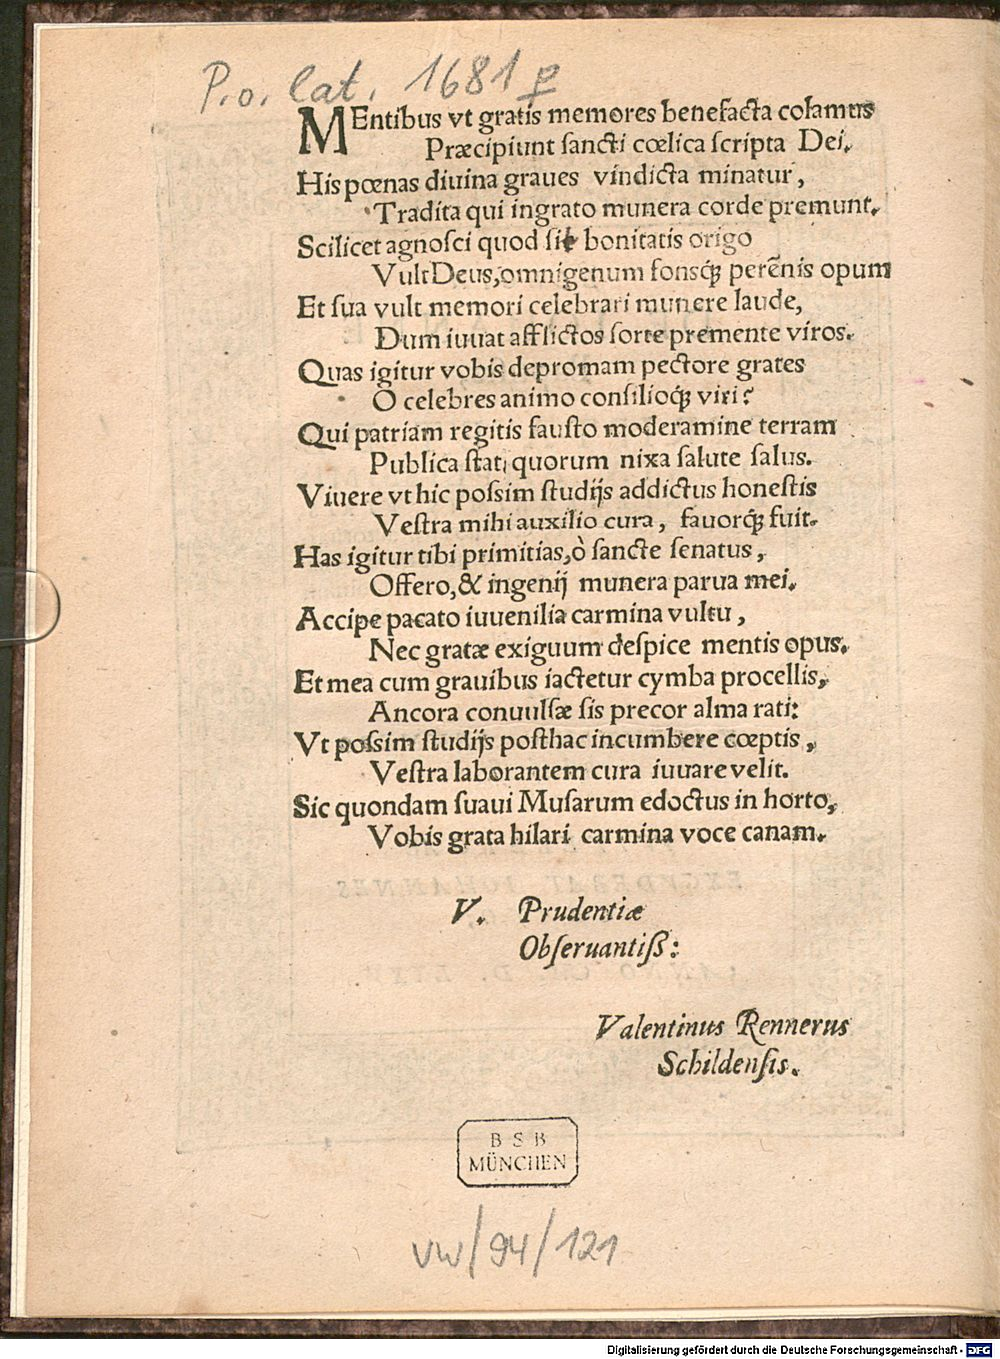 P.o. lat. 1681 p
MEntibus vt gratis memores benefacta colamus
Præcipiunt ſancti cœlica ſcripta Dei.
His pœnas diuina graues vindicta minatur,
Tradita qui ingrato munera corde premunt.
Scilicet agnoſci quod ſit bonitatis origo
Vult Deus, omnigenum fonsq́; perẽnis opum
Et ſua vult memori celebrari munere laude,
Dum iuuat afflictos ſorte premente viros.
Quas igitur vobis depromam pectore grates
O celebres animo conſilioq́; viri?
Qui patriam regitis fauſto moderamine terram
Publica ſtat, quorum nixa ſalute ſalus.
Viuere vt hic poſsim ſtudijs addictus honeſtis
Veſtra mihi auxilio cura, fauorq́; fuit.
Has igitur tibi primitias, ò ſancte ſenatus,
Offero, & ingenij munera parua mei.
Accipe pacato iuuenilia carmina vultu,
Nec gratæ exiguum deſpice mentis opus.
Et mea cum grauibus iactetur cymba procellis,
Ancora conuulſæ ſis precor alma rati:
Vt poſsim ſtudijs poſthac incumbere cœptis,
Veſtra laborantem cura iuuare velit.
Sic quondam ſuaui Muſarum edoctus in horto,
Vobis grata hilari carmina voce canam.
V. Prudentiæ
Obſeruantiß:
Valentinus Rennerus
Schildenſis.
B S B
MÜNCHEN
vw/94/121
Digitalisierung gefördert durch die Deutsche Forschungsgemeinschaft - DFG